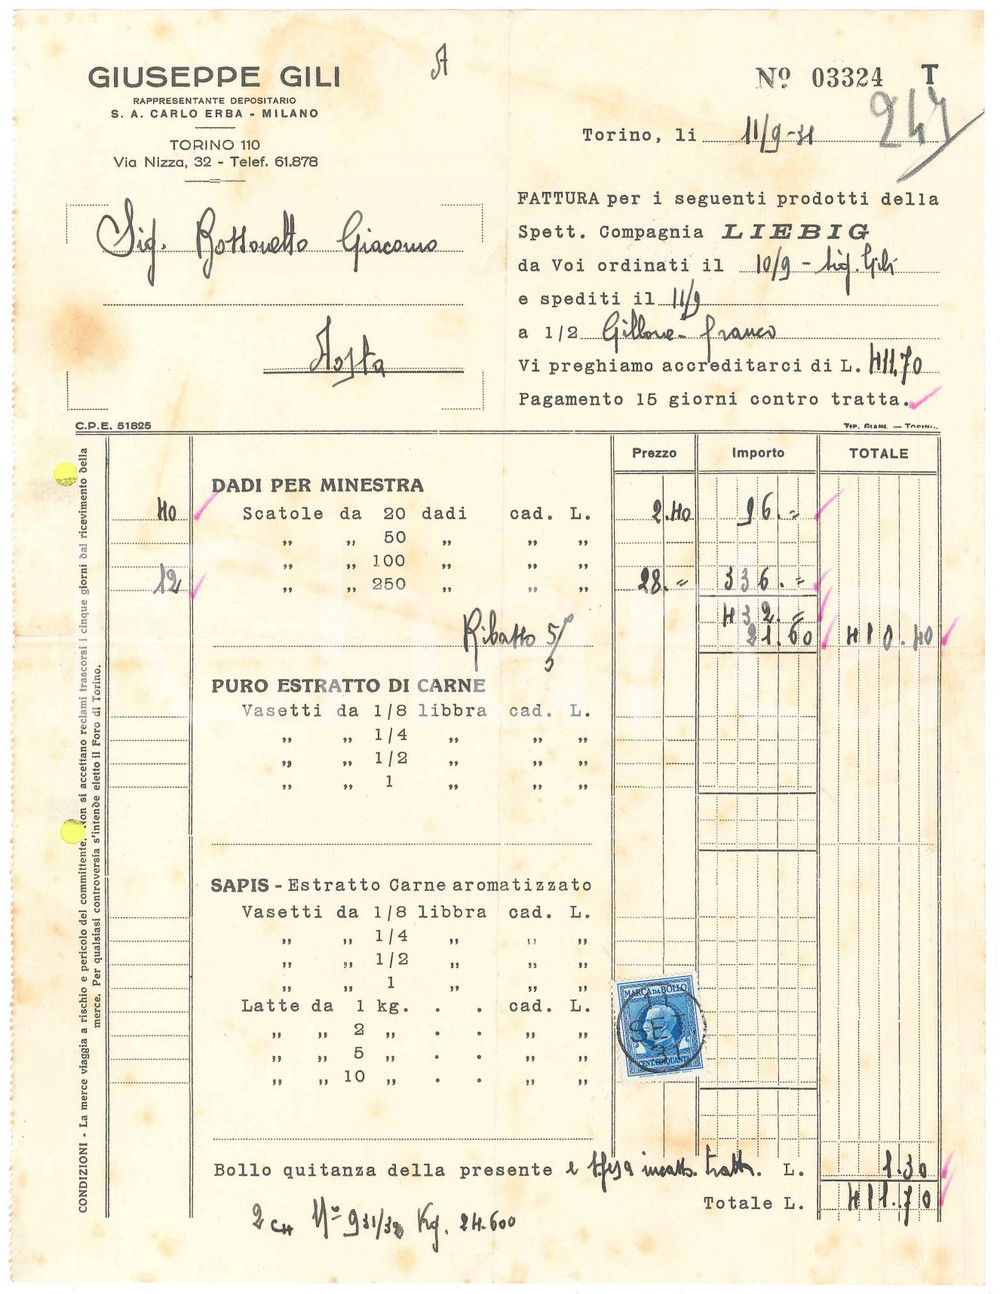 GIUSEPPE GILI
RAPPRESENTANTE DEPOSITARIO
S. A. CARLO ERBA - MILANO
TORINO 110
Via Nizza, 32 - Telef. 61.878
A
Nº 03324 T
247
Torino, li 11/9-31
Sig. Bossonetto Giacomo
Aosta
FATTURA per i seguenti prodotti della
Spett. Compagnia LIEBIG
da Voi ordinati il 10/9 - Sig. Gili
e spediti il 11/9
a 1/2 Gillone - franco
Vi preghiamo accreditarci di L. 411,70
Pagamento 15 giorni contro tratta.
C.P.E. 51825
Prezzo Importo TOTALE
DADI PER MINESTRA
40 Scatole da 20 dadi cad. L. 2.40 96.=
„ „ 50 „ „ „
„ „ 100 „ „ „
12 „ „ 250 „ „ „ 28.= 336.=
432.=
Ribasso 5% 21.60 410.40
PURO ESTRATTO DI CARNE
Vasetti da 1/8 libbra cad. L.
„ „ 1/4 „ „ „
„ „ 1/2 „ „ „
„ „ 1 „ „ „
SAPIS - Estratto Carne aromatizzato
Vasetti da 1/8 libbra cad. L.
„ „ 1/4 „ „ „
„ „ 1/2 „ „ „
„ „ 1 „ „ „
Latte da 1 kg. . . cad. L.
„ „ 2 „ . . „ „
„ „ 5 „ . . „ „
„ „ 10 „ . . „ „
MARCA DA BOLLO
11
SET
31
CENT. CINQUANTA
Bollo quitanza della presente e spesa incasso tratta. L. 1.30
Totale L. 411.70
2 Nº 931/32 Kg. 24.600
CONDIZIONI - La merce viaggia a rischio e pericolo del committente. Non si accettano reclami trascorsi i cinque giorni dal ricevimento della
merce. Per qualsiasi controversia s'intende eletto il Foro di Torino.